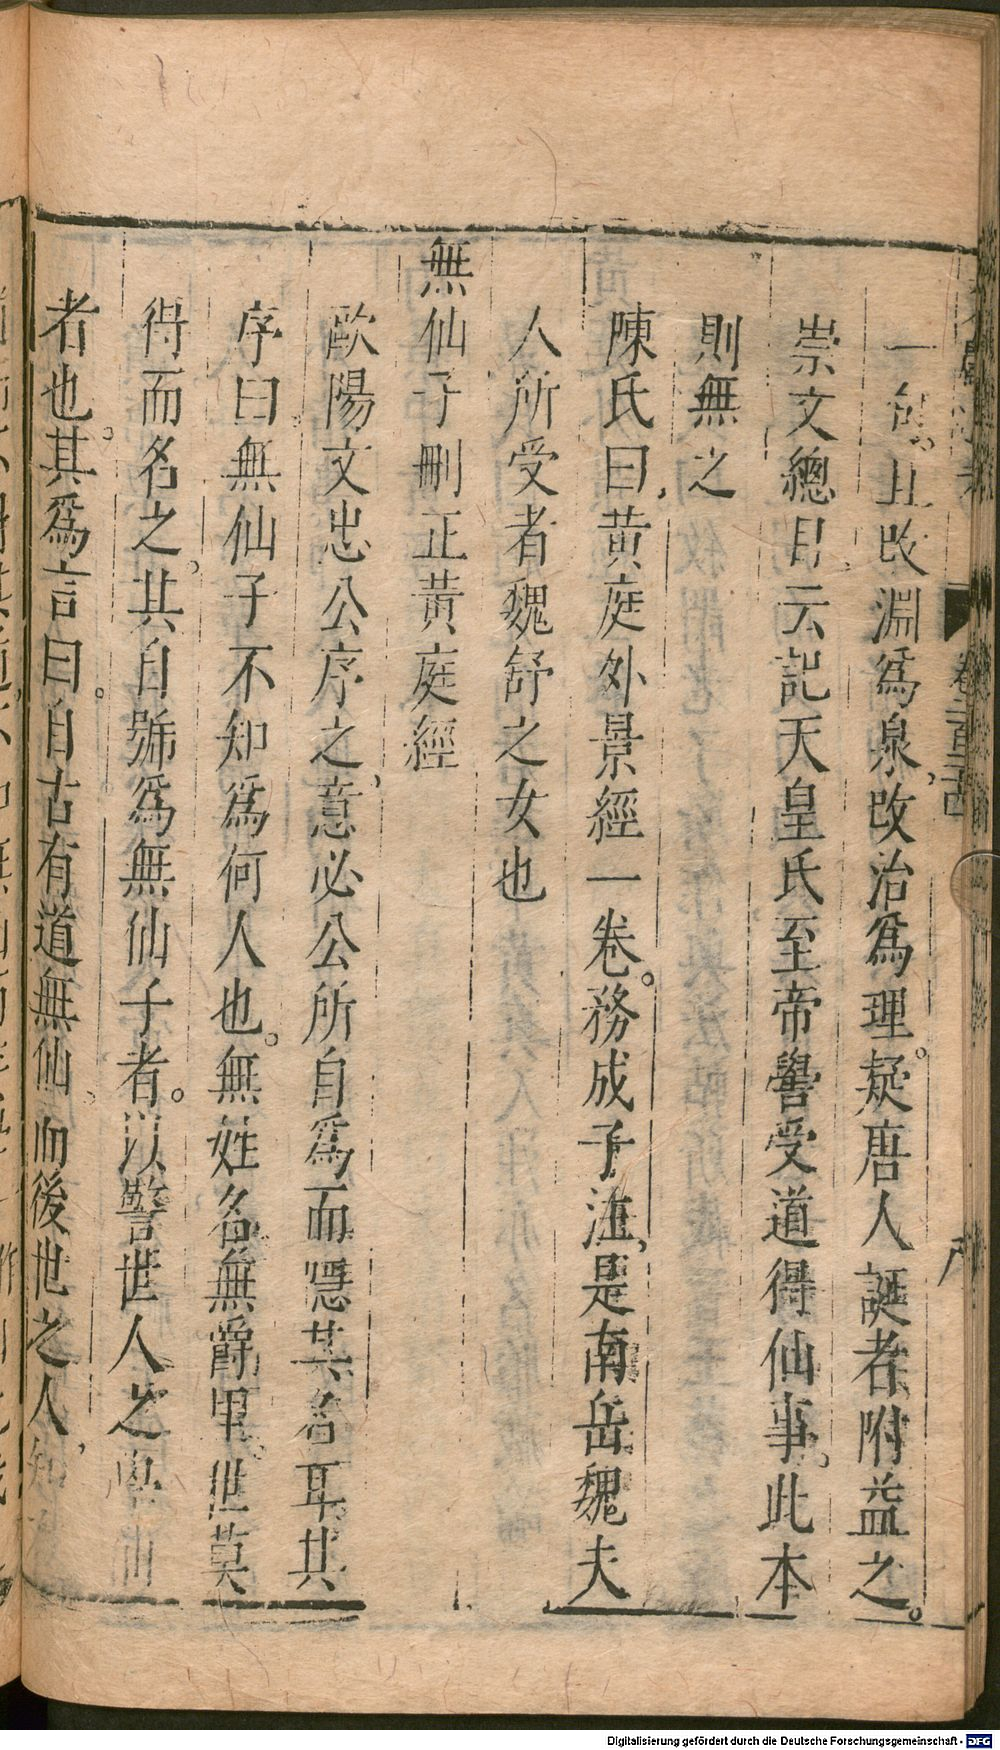 卷二百二十四
一𠣏。且改淵爲泉，改治爲理。疑唐人誕者附益之。
崇文總目云記天皇氏至帝嚳受道得仙事。此本
則無之
陳氏曰，黄庭外景經一卷。務成子注，是南岳魏夫
人所受者魏舒之女也
無仙子刪正黄庭經
歐陽文忠公序之，意必公所自爲而隱其名耳其
序曰。無仙子不知爲何人也。無姓名無爵里。世莫
得而名之。其自號爲無仙子者。以警世人之學仙
者也。其爲言曰。自古有道無仙。而後世之人，知
Digitalisierung gefördert durch die Deutsche Forschungsgemeinschaft - DFG